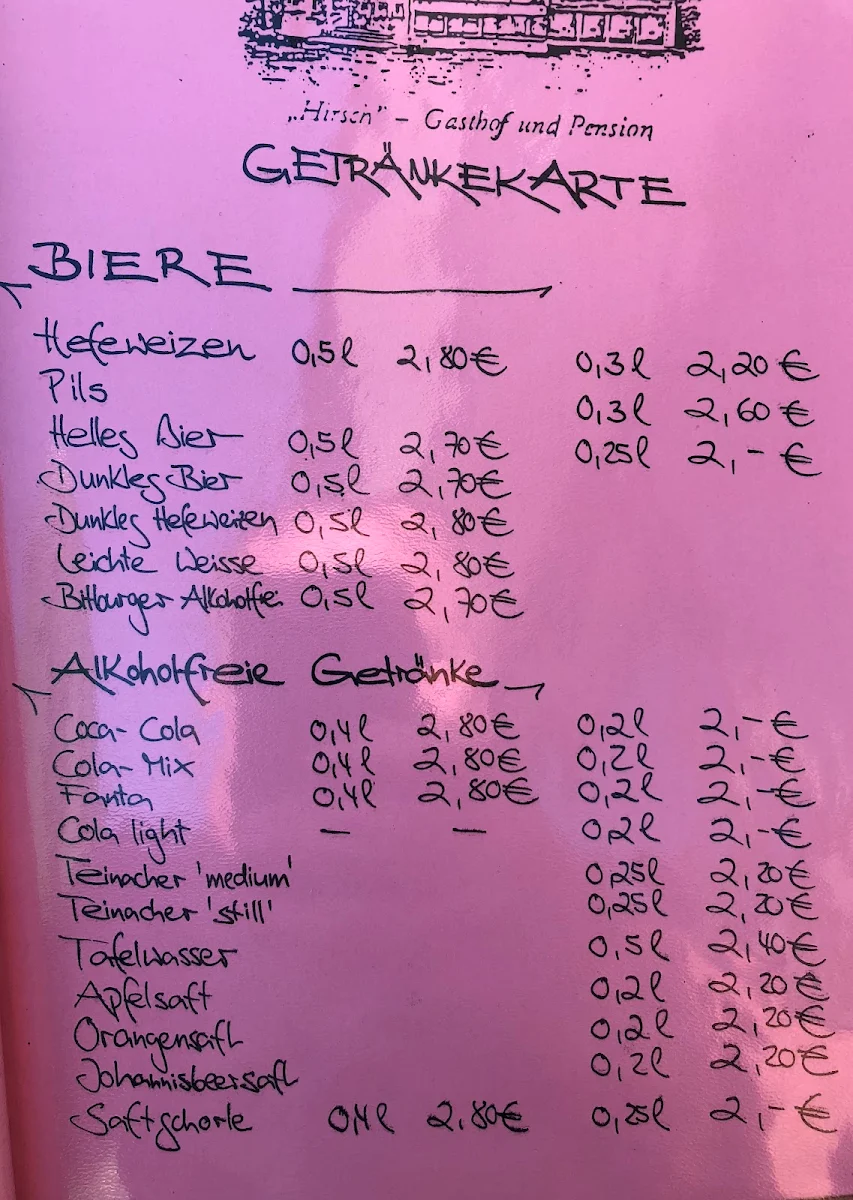 „Hirsch" – Gasthof und Pension
GETRÄNKEKARTE
BIERE
Hefeweizen 0,5l 2,80€ 0,3l 2,20€
Pils 0,3l 2,60€
Helles Bier 0,5l 2,70€ 0,25l 2,-€
Dunkles Bier 0,5l 2,70€
Dunkles Hefeweizen 0,5l 2,80€
Leichte Weisse 0,5l 2,80€
Bitburger Alkoholfrei 0,5l 2,70€
Alkoholfreie Getränke
Coca-Cola 0,4l 2,80€ 0,2l 2,-€
Cola-Mix 0,4l 2,80€ 0,2l 2,-€
Fanta 0,4l 2,80€ 0,2l 2,-€
Cola light — — 0,2l 2,-€
Teinacher 'medium' 0,25l 2,20€
Teinacher 'still' 0,25l 2,20€
Tafelwasser 0,5l 2,40€
Apfelsaft 0,2l 2,20€
Orangensaft 0,2l 2,20€
Johannisbeersaft 0,2l 2,20€
Saftschorle 0,4l 2.80€ 0,25l 2,-€